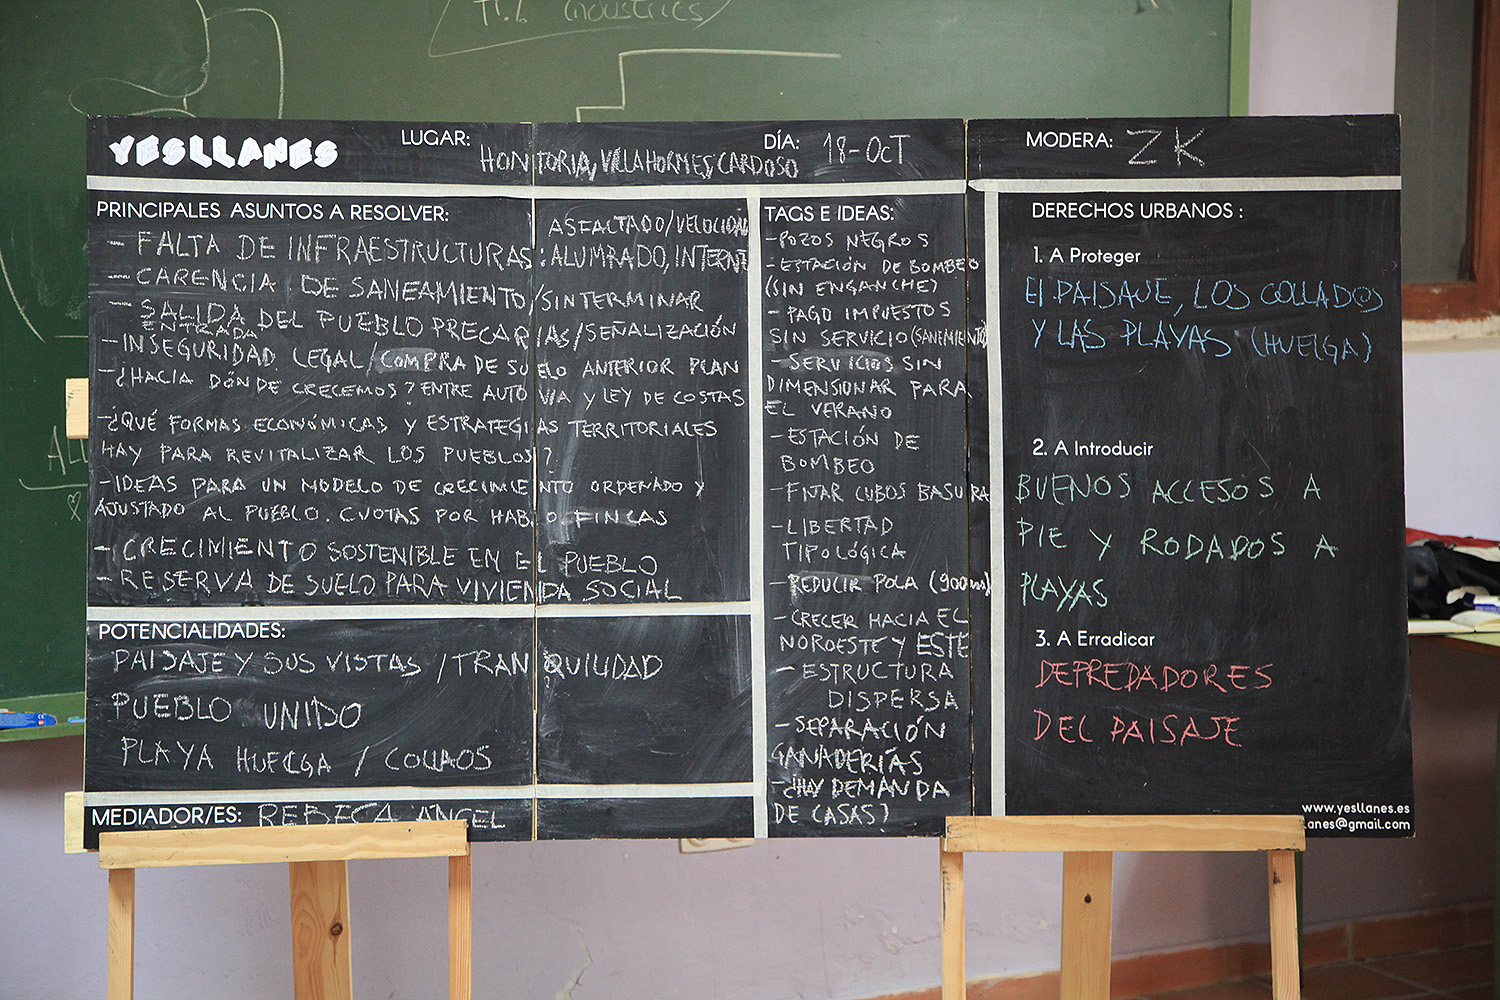 Industries
YESLLANES
LUGAR: HONTORIA, VILLAHORMES, CARDOSO
DÍA: 18-OCT
MODERA: ZK
PRINCIPALES ASUNTOS A RESOLVER:
ASFACTADO/VELOCIDAD
- FALTA DE INFRAESTRUCTURAS: ALUMRADO, INTERNE
- CARENCIA DE SANEAMIENTO/SINTERMINAR
- SALIDA DEL PUEBLO PRECARIAS/SEÑALIZACIÓN
ENTRADA
- INSEGURIDAD LEGAL/COMPRA DE SUELO ANTERIOR PLAN
- ¿HACIA DÓNDE CRECEMOS? ENTRE AUTOVIA Y LEY DE COSTAS
- ¿QUÉ FORMAS ECONÓMICAS Y ESTRATEGIAS TERRITORIALES
HAY PARA REVITALIZAR LOS PUEBLOS?
- IDEAS PARA UN MODELO DE CRECIMIENTO ORDENADO Y
AJUSTADO AL PUEBLO. CUOTAS POR HAB. O FINCAS
- CRECIMIENTO SOSTENIBLE EN EL PUEBLO
- RESERVA DE SUELO PARA VIVIENDA SOCIAL
POTENCIALIDADES:
PAISAJE Y SUS VISTAS / TRANQUILIDAD
PUEBLO UNIDO
PLAYA HUELGA / COLLAOS
MEDIADOR/ES: REBECA ANGEL
TAGS E IDEAS:
- POZOS NEGROS
- ESTACIÓN DE BOMBEO
(SIN ENGANCHE)
- PAGO IMPUESTOS
SIN SERVICIO (SANEMIENTO)
- SERVICIOS SIN
DIMENSIONAR PARA
EL VERANO
- ESTACIÓN DE
BOMBEO
- FIJAR CUBOS BASURA
- LIBERTAD
TIPOLÓGICA
- REDUCIR POLA (900m2)
- CRECER HACIA EL
NOROESTE Y ESTE
- ESTRUCTURA
DISPERSA
- SEPARACIÓN
GANADERÍAS
- ¿HAY DEMANDA
DE CASAS?
DERECHOS URBANOS :
1. A Proteger
El PAISAJE, LOS COLLADOS
Y LAS PLAYAS (HUELGA)
2. A Introducir
BUENOS ACCESOS A
PIE Y RODADOS A
PLAYAS
3. A Erradicar
DEPREDADORES
DEL PAISAJE
www.yesllanes.es
lanes@gmail.com